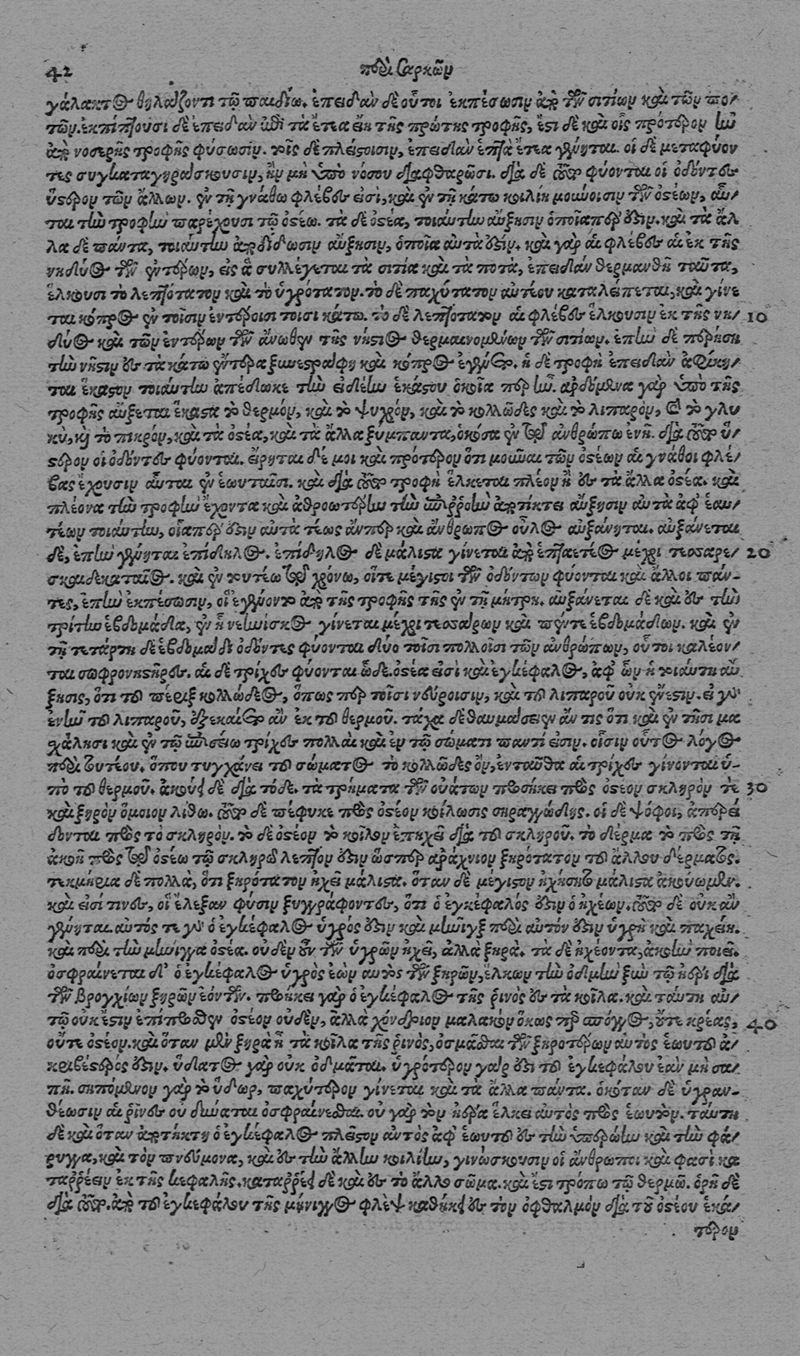 42 περὶ Σαρκῶν
γάλακτος θηλάζοντι τῷ παιδίῳ. ἐπειδὰν δὲ οὗτοι ἐκπέσωσιν ἀπὸ τῶν σιτίων καὶ τῶν πο-
τῶν. ἐκπίπτουσι δὲ ἐπειδὰν ἑπτὰ ἔτεα ἔῃ τῆς πρώτης τροφῆς, ἔστι δὲ καὶ οἷς πρότερον ἢν
ἀπὸ νοσερῆς τροφῆς φύσωσιν. τοῖς δὲ πλείστοισιν, ἐπειδὰν ἑπτὰ ἔτεα γένηται. οἱ δὲ μεταφύον
τες συγκαταγηράσκουσιν, ἢν μὴ ὑπὸ νόσου διαφθαρῶσι. διὰ δὲ τόδε φύονται οἱ ὀδόντες
ὕστερον τῶν ἄλλων. ἐν τῇ γνάθῳ φλέβες εἰσὶ, καὶ ἐν τῇ κάτω κοιλίῃ μούνοισιν τῶν ὀστέων, αὗ-
ται τὴν τροφὴν παρέχουσι τῷ ὀστέῳ. τὰ δὲ ὀστέα, τοιαύτην αὔξησιν ὁποῖαπέρ ἐστιν. καὶ τὰ ἄλ
λα δὲ πάντα, τοιαύτην ἀποδίδωσιν αὔξησιν, ὁποῖα αὐτὰ ἐστιν. καὶ γὰρ αἱ φλέβες αἱ ἐκ τῆς
νηδύος τῶν ἐντέρων, εἰς ἃ συλλέγεται τὰ σιτία καὶ τὰ ποτὰ, ἐπειδὰν θερμανθῇ ταῦτα,
ἕλκουσι τὸ λεπτότατον καὶ τὸ ὑγρότατον. τὸ δὲ παχύτατον αὐτέου καταλείπεται, καὶ γίνε
ται κόπρος ἐν τοῖσιν ἐντέροισι τοῖσι κάτω. τὸ δὲ λεπτότατον αἱ φλέβες ἕλκουσιν ἐκ τῆς νη- 10
δύος καὶ τῶν ἐντέρων τῶν ἄνωθεν τῆς νήστιος θερμαινομένων τῶν σιτίων. ἐπὴν δὲ περήσῃ
τὴν νῆστιν ἐς τὰ κάτω ἔντερα ξυνεστράφη καὶ κόπρος ἐγένετο. ἡ δὲ τροφὴ ἐπειδὰν ἀφίκη-
ται ἕκαστον τοιαύτην ἀπέδωκε τὴν εἰδέην ἑκάστου ὁκοία περ ἦν. ἀρδόμενα γὰρ ὑπὸ τῆς
τροφῆς αὔξεται ἕκαστα τὸ θερμὸν, καὶ τὸ ψυχρὸν, καὶ τὸ κολλῶδες καὶ τὸ λιπαρὸν, καὶ τὸ γλυ
κὺ, καὶ τὸ πικρὸν, καὶ τὰ ὀστέα, καὶ τὰ ἄλλα ξύμπαντα, ὁκόσα ἐν τῷ ἀνθρώπῳ ἐνῇ. διὰ τόδε ὕ-
στερον οἱ ὀδόντες φύονται. εἴρηται δέ μοι καὶ πρότερον ὅτι μοῦναι τῶν ὀστέων αἱ γνάθοι φλέ-
βας ἔχουσιν αὗται ἐν ἑωυτῇσιν. καὶ διὰ τόδε τροφὴ ἕλκεται πλέον ἢ ἐς τὰ ἄλλα ὀστέα. καὶ
πλέονα τὴν τροφὴν ἔχοντα καὶ ἀθροωτέρην τὴν ἐπιρροὴν ἀποτίκτει αὔξησιν αὐτὰ ἀφ' ἑωυ-
τέων τοιαύτην, οἷάπερ ἐστὶν αὐτὰ τέως ἄνπερ καὶ ἄνθρωπος οὖλος αὐξάνηται. αὐξάνεται
δὲ, ἐπὴν γένηται ἐπίδηλος. ἐπίδηλος δὲ μάλιστα γίνεται ἀπὸ ἑπταέτεος μέχρι τεσσαρε- 20
σκαιδεκαταίου. καὶ ἐν τουτέῳ τῷ χρόνῳ, οἵτε μέγιστοι τῶν ὀδόντων φύονται καὶ ἄλλοι πάν-
τες, ἐπὴν ἐκπέσωσιν, οἳ ἐγένοντο ἀπὸ τῆς τροφῆς τῆς ἐν τῇ μήτρῃ. αὐξάνεται δὲ καὶ ἐς τὴν
τρίτην ἑβδομάδα, ἐν ᾗ νεηνίσκος γίνεται μέχρι τεσσάρων καὶ πέντε ἑβδομάδων. καὶ ἐν
τῇ τετάρτῃ δὲ ἑβδομάδι ὀδόντες φύονται δύο τοῖσι πολλοῖσι τῶν ἀνθρώπων, οὗτοι καλέον-
ται σωφρονηστῆρες. αἱ δὲ τρίχες φύονται ὧδε. ὀστέα εἰσὶ καὶ ἐγκέφαλος, ἀφ' ὧν ἡ τοιαύτη αὔ
ξησις, ὅτι τὸ πέριξ κολλῶδες, ὅπως περ τοῖσι νεύροισιν, καὶ τοῦ λιπαροῦ οὐκ ἔνεστιν. εἰ γὰρ
ἐνῆν τοῦ λιπαροῦ, ἐξεκαίετο ἂν ἐκ τοῦ θερμοῦ. τάχα δὲ θαυμάσειεν ἄν τις ὅτι καὶ ἐν τῇσι μα
σχάλησι καὶ ἐν τῷ ἐπισείῳ τρίχες πολλαὶ καὶ ἐν τῷ σώματι παντί εἰσιν. οἷσιν οὗτος λόγος
περὶ τουτέου. ὅπου τυγχάνει τοῦ σώματος τὸ κολλῶδες ὂν, ἐνταῦθα αἱ τρίχες γίνονται ὑ-
πὸ τοῦ θερμοῦ. ἀκούει διὰ τόδε. τὰ τρήματα τῶν οὐάτων προσήκει πρὸς ὀστέον σκληρόν τε 30
καὶ ξηρὸν ὅμοιον λίθῳ. τόδε δὲ πέφυκε πρὸς ὀστέον κοίλωσις σηραγγώδης. οἱ δὲ ψόφοι, ἀπερεί
δονται πρὸς τὸ σκληρὸν. τὸ δὲ ὀστέον τὸ κοῖλον ἐπηχεῖ διὰ τοῦ σκληροῦ. τὸ δέρμα τὸ πρὸς τῇ
ἀκοῇ πρὸς τῷ ὀστέῳ τῷ σκληρῷ λεπτόν ἐστιν ὥσπερ ἀράχνιον ξηρότατον τοῦ ἄλλου δέρματος.
τεκμήρια δὲ πολλὰ, ὅτι ξηρότατον ἠχεῖ μάλιστα. ὅταν δὲ μέγιστον ἠχήσῃ μάλιστα ἀκούωμεν.
καὶ εἰσί τινες, οἳ ἔλεξαν φύσιν ξυγγράφοντες, ὅτι ὁ ἐγκέφαλός ἐστιν ὁ ἠχέων. τόδε δὲ οὐκ ἂν
γένηται. αὐτός τε γὰρ ὁ ἐγκέφαλος ὑγρός ἐστιν καὶ μῆνιγξ περὶ αὐτόν ἐστιν ὑγρὴ καὶ παχείη.
καὶ περὶ τὴν μήνιγγα ὀστέα. οὐδὲν οὖν τῶν ὑγρῶν ἠχεῖ, ἀλλὰ ξηρά. τὰ δὲ ἠχέοντα, ἀκοὴν ποιεῖ.
ὀσφραίνεται δ' ὁ ἐγκέφαλος ὑγρὸς ἐὼν αὐτὸς τῶν ξηρῶν, ἕλκων τὴν ὀδμὴν ξὺν τῷ ἠέρι διὰ
τῶν βρογχίων ξηρῶν ἐόντων. προήκει γὰρ ὁ ἐγκέφαλος τῆς ῥινὸς ἐς τὰ κοῖλα. καὶ ταύτῃ αὐ-
τῷ οὐκ ἔστιν ἐπίπροσθεν ὀστέον οὐδὲν, ἀλλὰ χόνδριον μαλακὸν ὅκως περ σπόγγος, οὔτε κρέας, 40
οὔτε ὀστέον. καὶ ὅταν μὲν ξηρὰ ᾖ τὰ κοῖλα τῆς ῥινὸς, ὀσμᾶσθαι τῶν ξηροτέρων αὐτὸς ἑωυτοῦ ἀ-
κριβέστερός ἐστιν. ὕδατος γὰρ οὐκ ὀδμᾶται. ὑγρότερον γάρ ἐστι τοῦ ἐγκεφάλου ἐὰν μὴ σα-
πῇ. σηπόμενον γὰρ τὸ ὕδωρ, παχύτερον γίνεται καὶ τὰ ἄλλα πάντα. ὁκόταν δὲ ὑγραν-
θέωσιν αἱ ῥῖνες οὐ δύναται ὀσφραίνεσθαι. οὐ γὰρ τὸν ἠέρα ἕλκει αὐτὸς πρὸς ἑωυτόν. ταύτῃ
δὲ καὶ ὅταν ἀποτήκῃ ὁ ἐγκέφαλος πλεῖστον αὐτὸς ἀφ' ἑωυτοῦ ἐς τὴν ὑπερῴην καὶ τὴν φά-
ρυγγα, καὶ τὸν πνεύμονα, καὶ ἐς τὴν ἄλλην κοιλίην, γινώσκουσιν οἱ ἄνθρωποι καὶ φασὶ κα
ταρρέειν ἐκ τῆς κεφαλῆς. καταρρεῖ δὲ καὶ ἐς τὸ ἄλλο σῶμα. καὶ ἔστι τρόπῳ τῷ θερμῷ. ὁρῇ δὲ
διὰ τόδε. ἀπὸ τοῦ ἐγκεφάλου τῆς μήνιγγος φλὲψ καθήκει ἐς τὸν ὀφθαλμὸν διὰ τοῦ ὀστέου ἑκά-
τερον